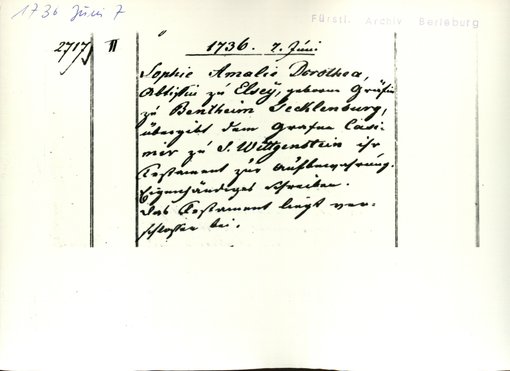 1736 Juni 7
Fürstl. Archiv Berleburg
2717 II
1736. 7. Juni
Sophie Amalie Dorothea,
Abtissin zu Elsey, geborene Gräfin
zu Bentheim Tecklenburg,
übergibt dem Grafen Casi-
mir zu S. Wittgenstein ihr
Testament zur Aufbewahrung.
Eigenhändiges Schreiben.
Das Testament liegt ver-
schlossen bei.